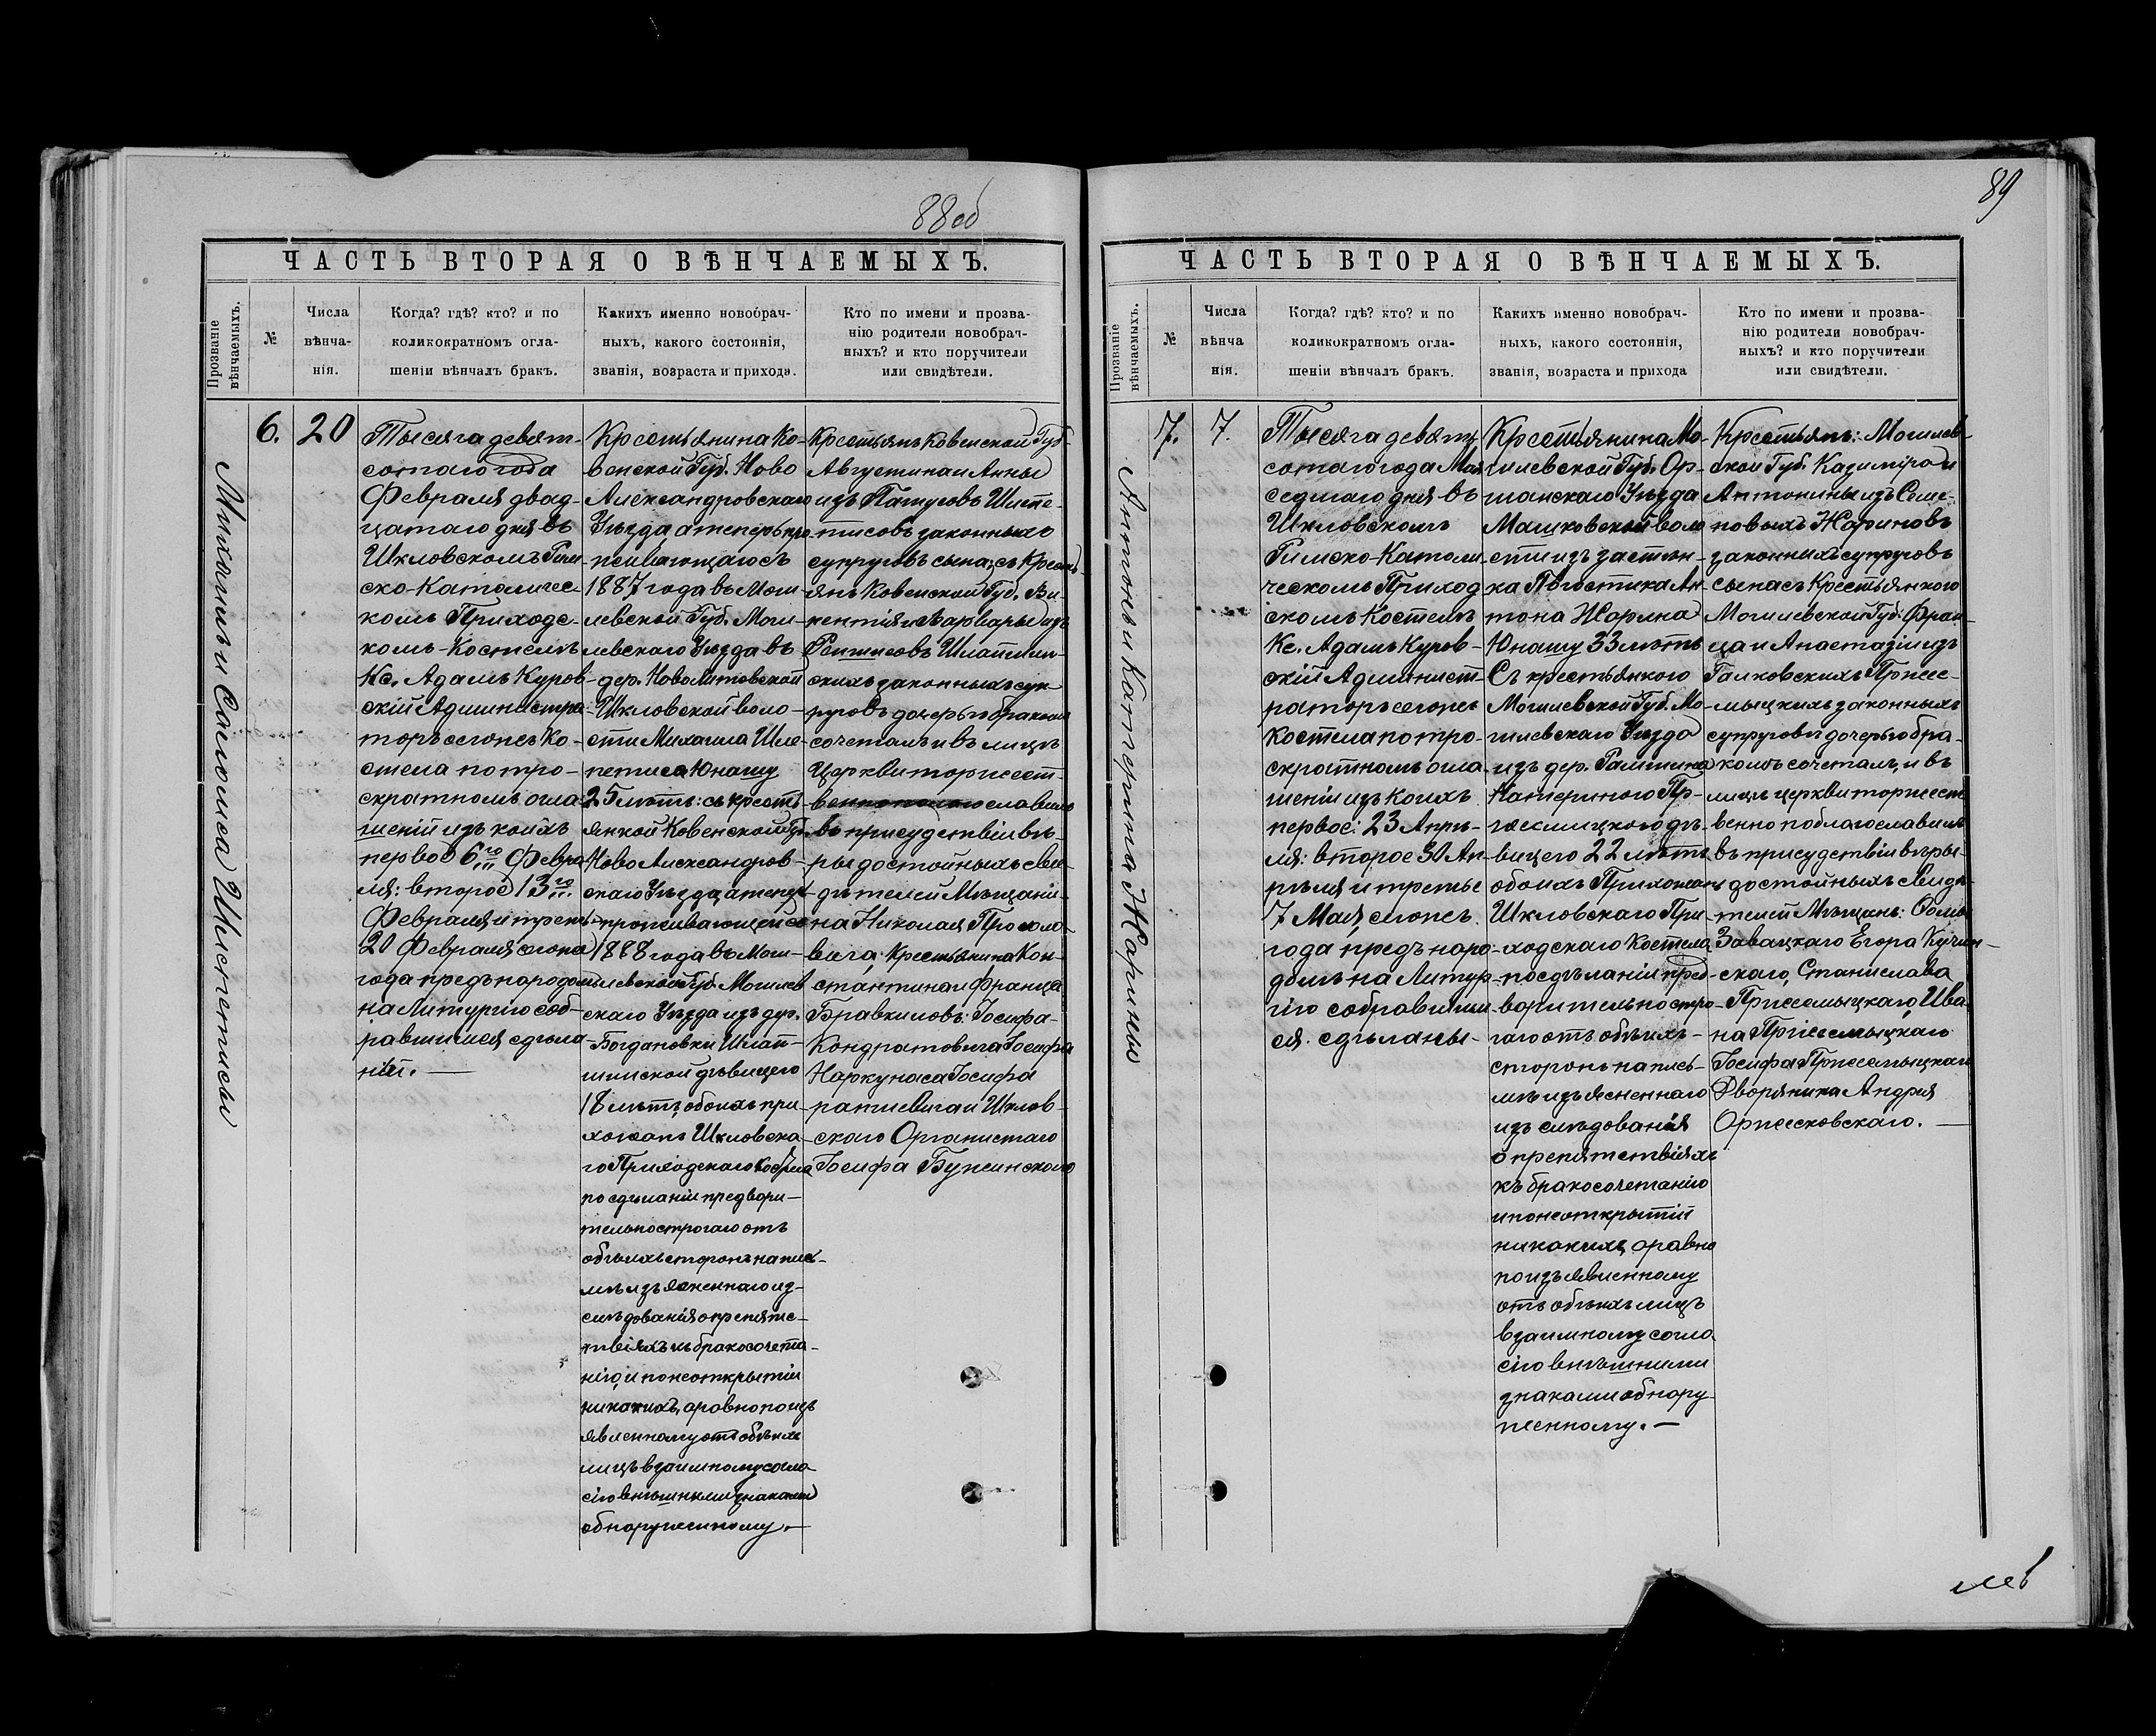 88об
ЧАСТЬ ВТОРАЯ О ВѢНЧАЕМЫХЪ.
Прозваніе
вѣнчаемыхъ.
№
Числа
вѣнча-
нія.
Когда? гдѣ? кто? и по
коликократномъ огла-
шеніи вѣнчалъ бракъ.
Какихъ именно новобрач-
ныхъ, какого состоянія,
званія, возраста и прихода.
Кто по имени и прозва-
нію родители новобрач-
ныхъ? и кто поручители
или свидѣтели.
Михаилъ и Саломея Шлепетисы
6.
20
Тысяча девят-
сотаго года
Февраля двад-
цатаго дня въ
Шкловскомъ Рим-
ско-Католичес-
комъ Приходс-
комъ Костелѣ
Кс. Адамъ Куров-
скій Администра-
торъ сегожъ Ко-
стела по тро-
екратномъ огла-
шеній изъ коихъ
первое 6го Февра
ля: второе 13го
Февраля и треть
20 Февраля сего же
года предъ народомъ
на Литургію соб-
равшимся сдѣла
ній. —
Крестьянина Ко-
венской Губ. Ново
Александровскаго
Уѣзда а теперь про
живающагось
1887 года въ Моги
левской Губ. Моги-
левскаго Уѣзда въ
дер. Новолитовской
Шкловской воло-
сти Михаила Шле-
петиса Юношу
25 лѣтъ: съ крестъ
янкой Ковенской Губ.
Ново Александров-
скаго Уѣзда, а теперь
проживающейся
1888 года въ Моги-
левской Губ. Могилев
скаго Уѣзда изъ дер.
Богдановки Шлап-
шиской дѣвицею
18 лѣтъ, обоихъ при-
хожанъ Шкловска-
го Приходскаго Костела
по сдѣланіи предвори-
тельно строгаго отъ
обѣихъ сторонъ на пись-
мѣ изъясненнаго из-
слѣдованія о препятс-
твіяхъ къ бракосочета-
нію, и по не открытіи
никакихъ, а равно по изъ
явленному отъ обѣихъ
лицъ взаимному согла-
сію внѣшными знаками
обнаруженному. —
Крестьянъ Ковенской Губ-
Августина и Анны
супруговъ сына, съ Крестъ-
янъ Ковенской Губ. Ви-
кентія и Варвары изъ
скихъ законныхъ суп
руговъ дочерью бракомъ
сочеталъ и въ лицѣ
Церкви торжест-
венно благословилъ
въ присудствіи вѣ-
ры достойныхъ сви-
дѣтелей Мѣщани-
на Николая
вича, Крестьянина Кон-
стантина и Франца
Іосифа
Кондратовича Іосифа
Наркунаса Іосифа
и Шклов-
скаго Органистаго
Іосифа Бужинскаго
89
ЧАСТЬ ВТОРАЯ О ВѢНЧАЕМЫХЪ.
Прозваніе
вѣнчаемыхъ.
№
Числа
вѣнча
нія.
Когда? гдѣ? кто? и по
коликократномъ огла-
шеніи вѣнчалъ бракъ.
Какихъ именно новобрач-
ныхъ, какого состоянія,
званія, возраста и прихода
Кто по имени и прозва-
нію родители новобрач-
ныхъ? и кто поручители
или свидѣтели.
Антоній и Катерина Жарины
7.
7.
Тысяча девятъ
сотаго года Мая
седмаго дня въ
Шкловскомъ
Римско-Католи-
ческомъ Приход
скомъ Костелѣ
Кс. Адамъ Куров-
скій Админист-
раторъ сегожъ
Костела по тро-
екратномъ огла
шеніи изъ коихъ
первое: 23 Апрѣ-
ля: второе 30 Ап-
рѣля и третье
7 Мая, сегожъ
года предъ наро-
домъ на Литур-
гію собравшим
ся сдѣланы-
Крестьянина Мо-
гилевской Губ. Ор-
шанскаго Уѣзда
Машковской воло
сти изъ застѣн-
ка Погостика Ан
тона Жарина
Юношу 33 лѣтъ
Съ крестьянкою
Могилевской Губ. Мо-
гилевскаго Уѣзда
изъ дер.
Катериною Пр-
жесмицкою дѣ-
вицею 22 лѣтъ
обоихъ Прихожанъ
Шкловскаго При
ходскаго Костела
по сдѣланіи пред-
ворительно стро-
гаго отъ обѣихъ-
сторонъ на пись-
мѣ изъясненнаго
изъ слѣдованія
о препятствіяхъ
къ бракосочетанію
и по не открытій
никакихъ, а равно
по изъявленному
отъ обѣихъ лицъ
взаимному согла-
сію внѣшними
знаками обнару-
женному. —
Крестьянъ: Могилев-
ской Губ. Казиміра и
Антонины изъ Семе-
новыхъ Жариновъ
законныхъ супруговъ
сына съ Крестьянкою
Могилевской Губ. Фран-
ца и Анастазіи изъ
Галковскихъ Пржес-
мыцкихъ законныхъ
супруговъ дочерью бра-
комъ сочеталъ, и въ
лицѣ церкви торжест-
венно поблагословилъ
въ присудствіи вѣры-
достойныхъ свидѣ-
телей Мѣщанъ: Фомы
Завацкаго Егора Кучин-
скаго, Станислава
Пржесмыцкаго, Ива
на Пржесмыцкаго
Іосифа Пржесмыцкаго
Дворянина Андрея
Оржесковскаго. —